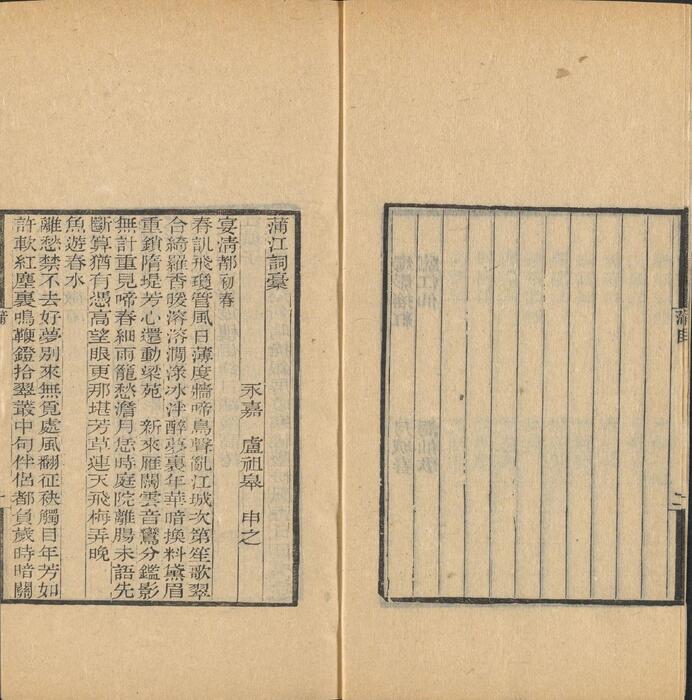 蒲目
二
蒲江詞稾
永嘉 盧祖皋 申之
宴清都初春
春訊飛瓊管風日薄度牆啼鳥聲亂江城次第笙歌翠
合綺羅香暖溶溶澗淥冰泮醉夢裏年華暗換料黛眉
重鎖隋堤芳心還動梁苑 新來雁闊雲音鸞分鑑影
無計重見啼春細雨籠愁澹月恁時庭院離腸未語先
斷算猶有憑高望眼更那堪芳草連天飛梅弄晚
魚遊春水
離愁禁不去好夢別來無覓處風翻征袂觸目年芳如
許軟紅塵裏鳴鞭鐙拾翠叢中句伴侶都負歲時暗關